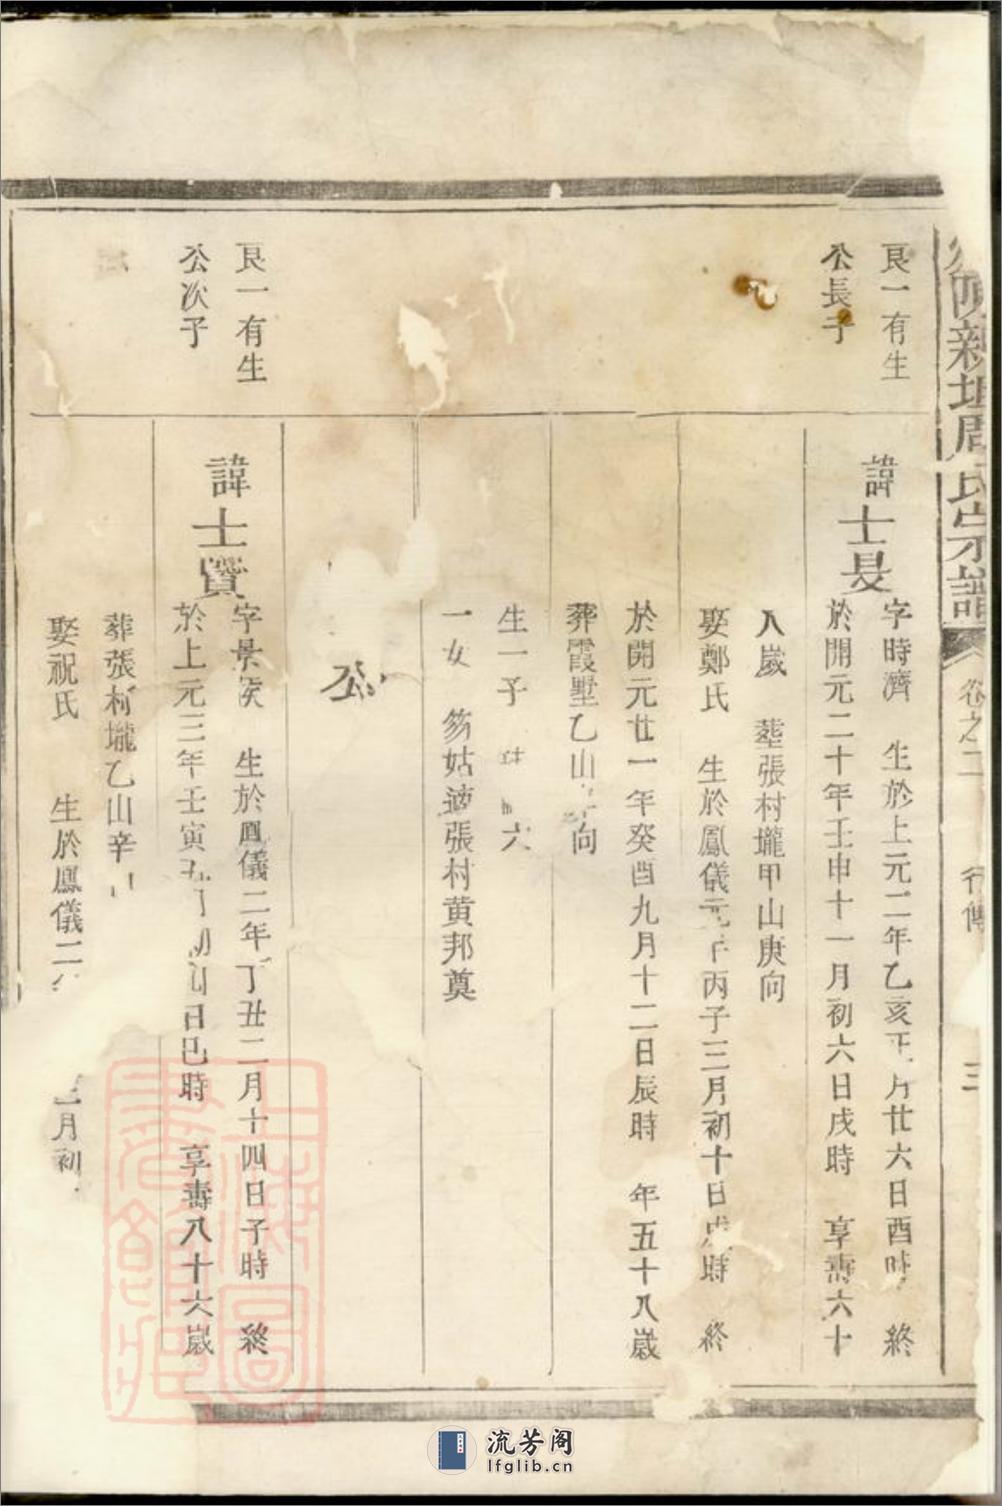 新 周氏宗譜 卷之二 行傳 三
艮一有生
公長子
諱士㫤
字時濟 生於上元二年乙亥正月廿六日酉時 終
於開元二十年壬申十一月初六日戌時 享壽六十
八歲 塟張村壠甲山庚向
娶鄭氏 生於鳳儀元年丙子三月初十日戌時 終
於開元廿一年癸酉九月十二日辰時 年五十八歲
葬霞墅乙山 向
生一子 六
一女 筯姑適張村黄邦奠
公
艮一有生
公次子
諱士贒
字景 生於鳳儀二年丁丑二月十四日子時 終
於上元三年壬寅 月 日巳時 享壽八十六歲
葬張村壠乙山辛
娶祝氏 生於鳳儀二 月初
流芳阁
lfglib.cn